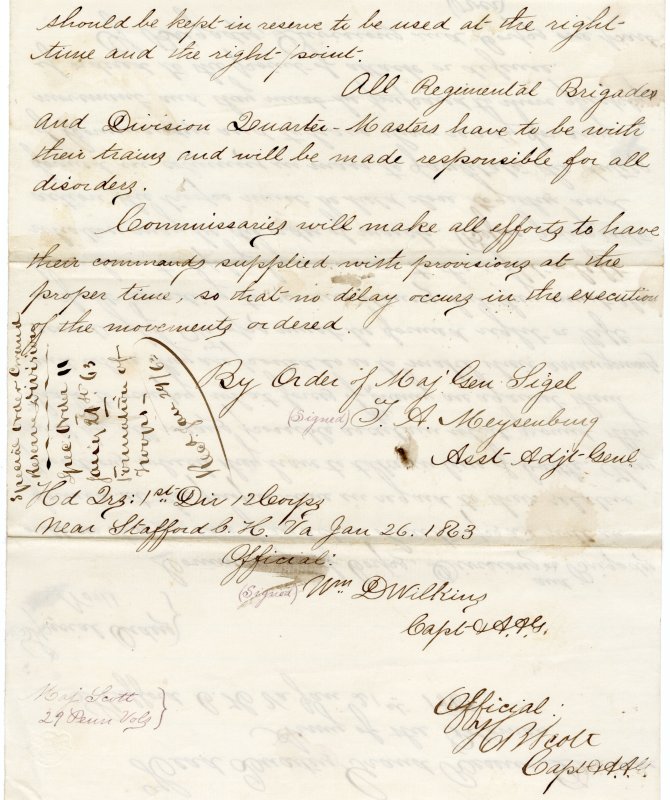 should be kept in reserve to be used at the right
time and the right point.
All Regimental Brigades
and Division Quarter-Masters have to be with
their trains and will be made responsible for all
disorders.
Commissaries will make all efforts to have
their commands supplied with provisions at the
proper time, so that no delay occurs in the execution
of the movements ordered.
By Order of Maj Gen Sigel
(Signed) T. A. Meysenburg
Asst Adjt Genl
Special Order Grand
Reserve Division
Spec Order 11
Jany 21st 63
Formation of
Troops
Rec'd Jan 29/63
Hd Qrs: 1st Div 12 Corps
Near Stafford C. H. Va Jan 26. 1863
Official:
(Signed) Wm D Wilkins
Capt & A.A.G.
Maj Scott
29 Penn Vols
Official:
H B Scott
Capt & A.A.G.